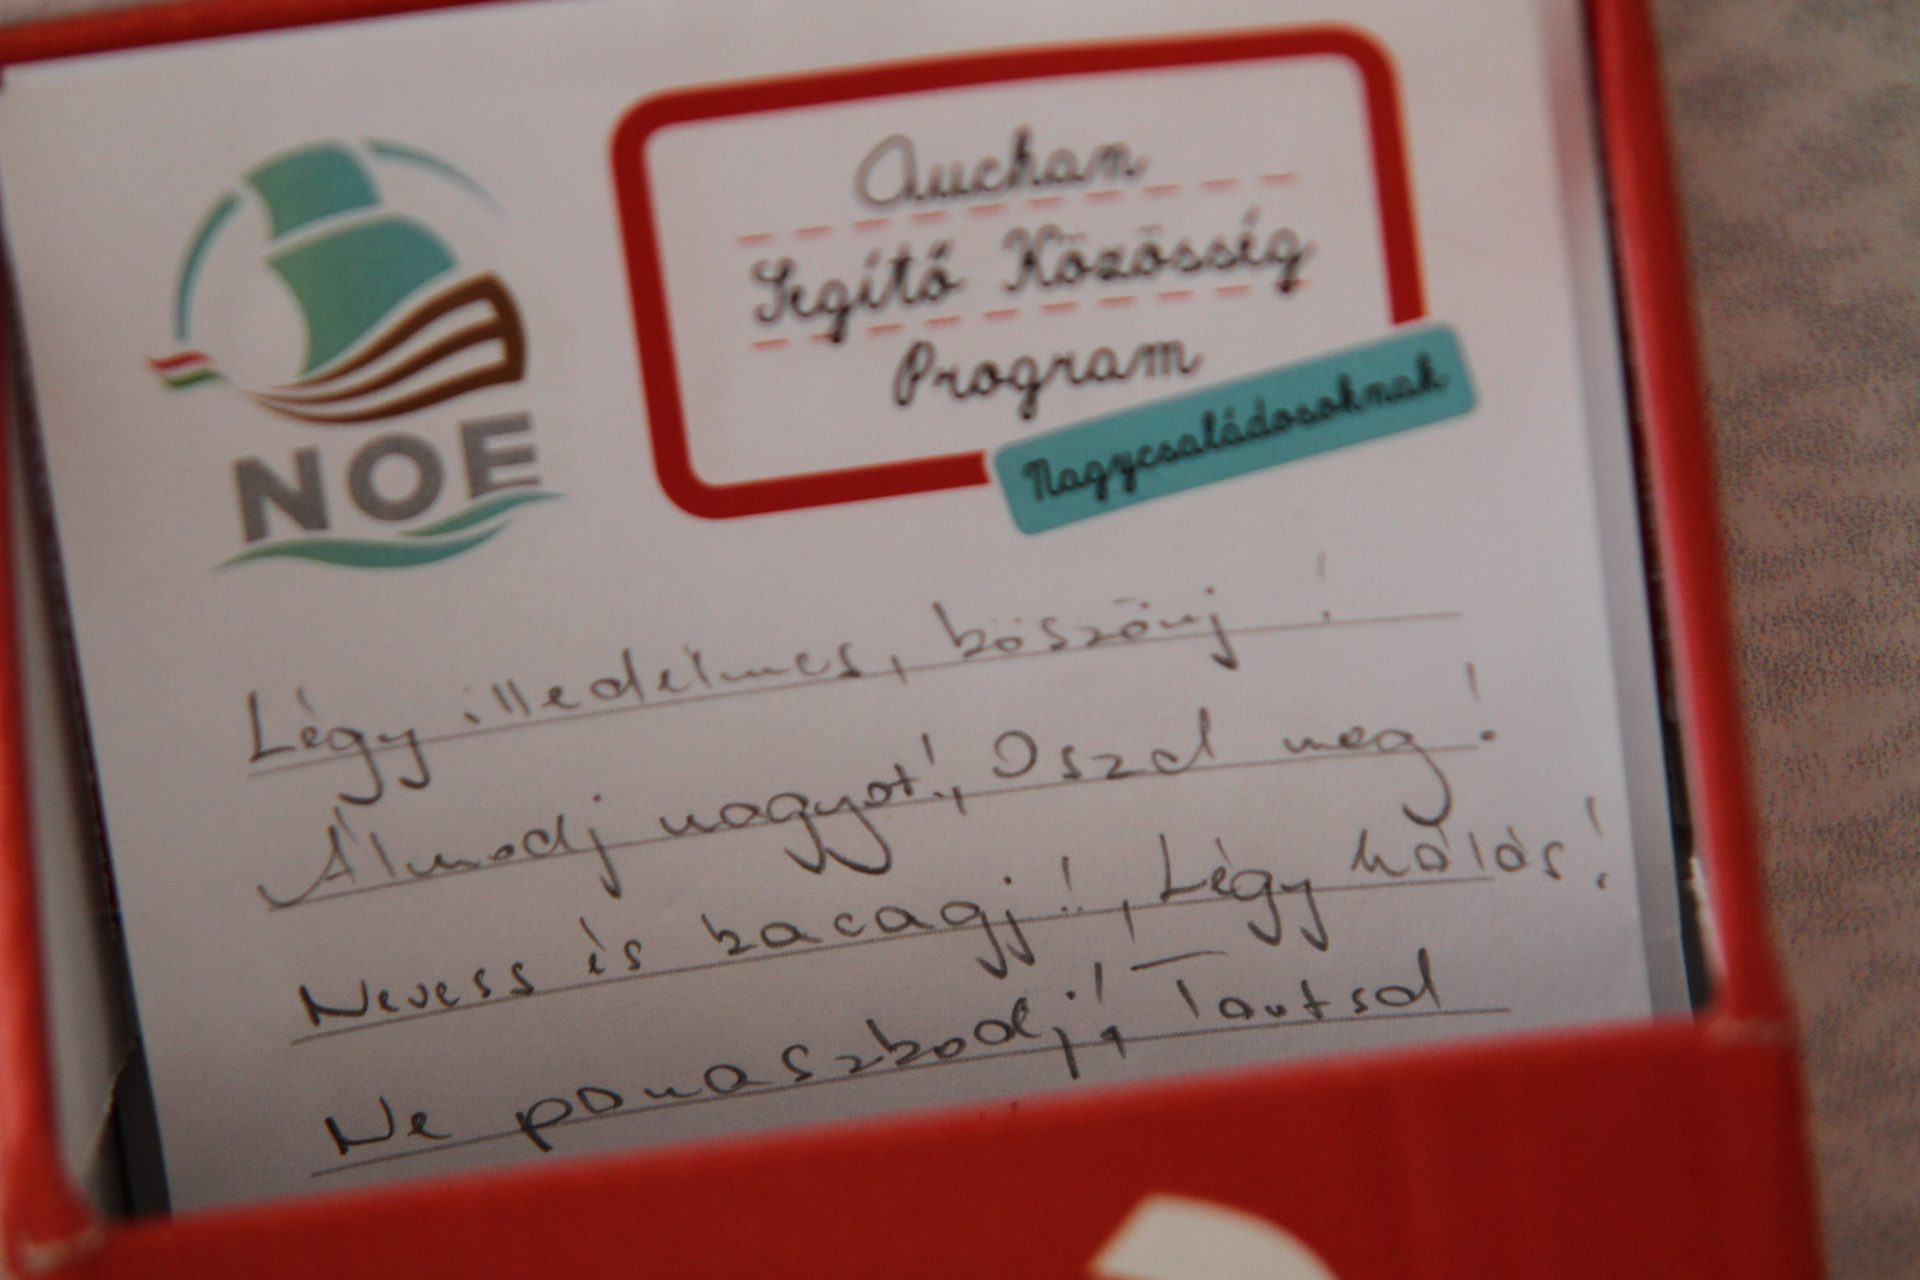 NOE
Auchan
Segítő Közösség
Program
Nagycsaládosoknak
Légy illedelmes, köszönj!
Álmodj nagyot!, Oszd meg!
Nevess és kacagj!, Légy hálás!
Ne panaszkodj!, Tartsd